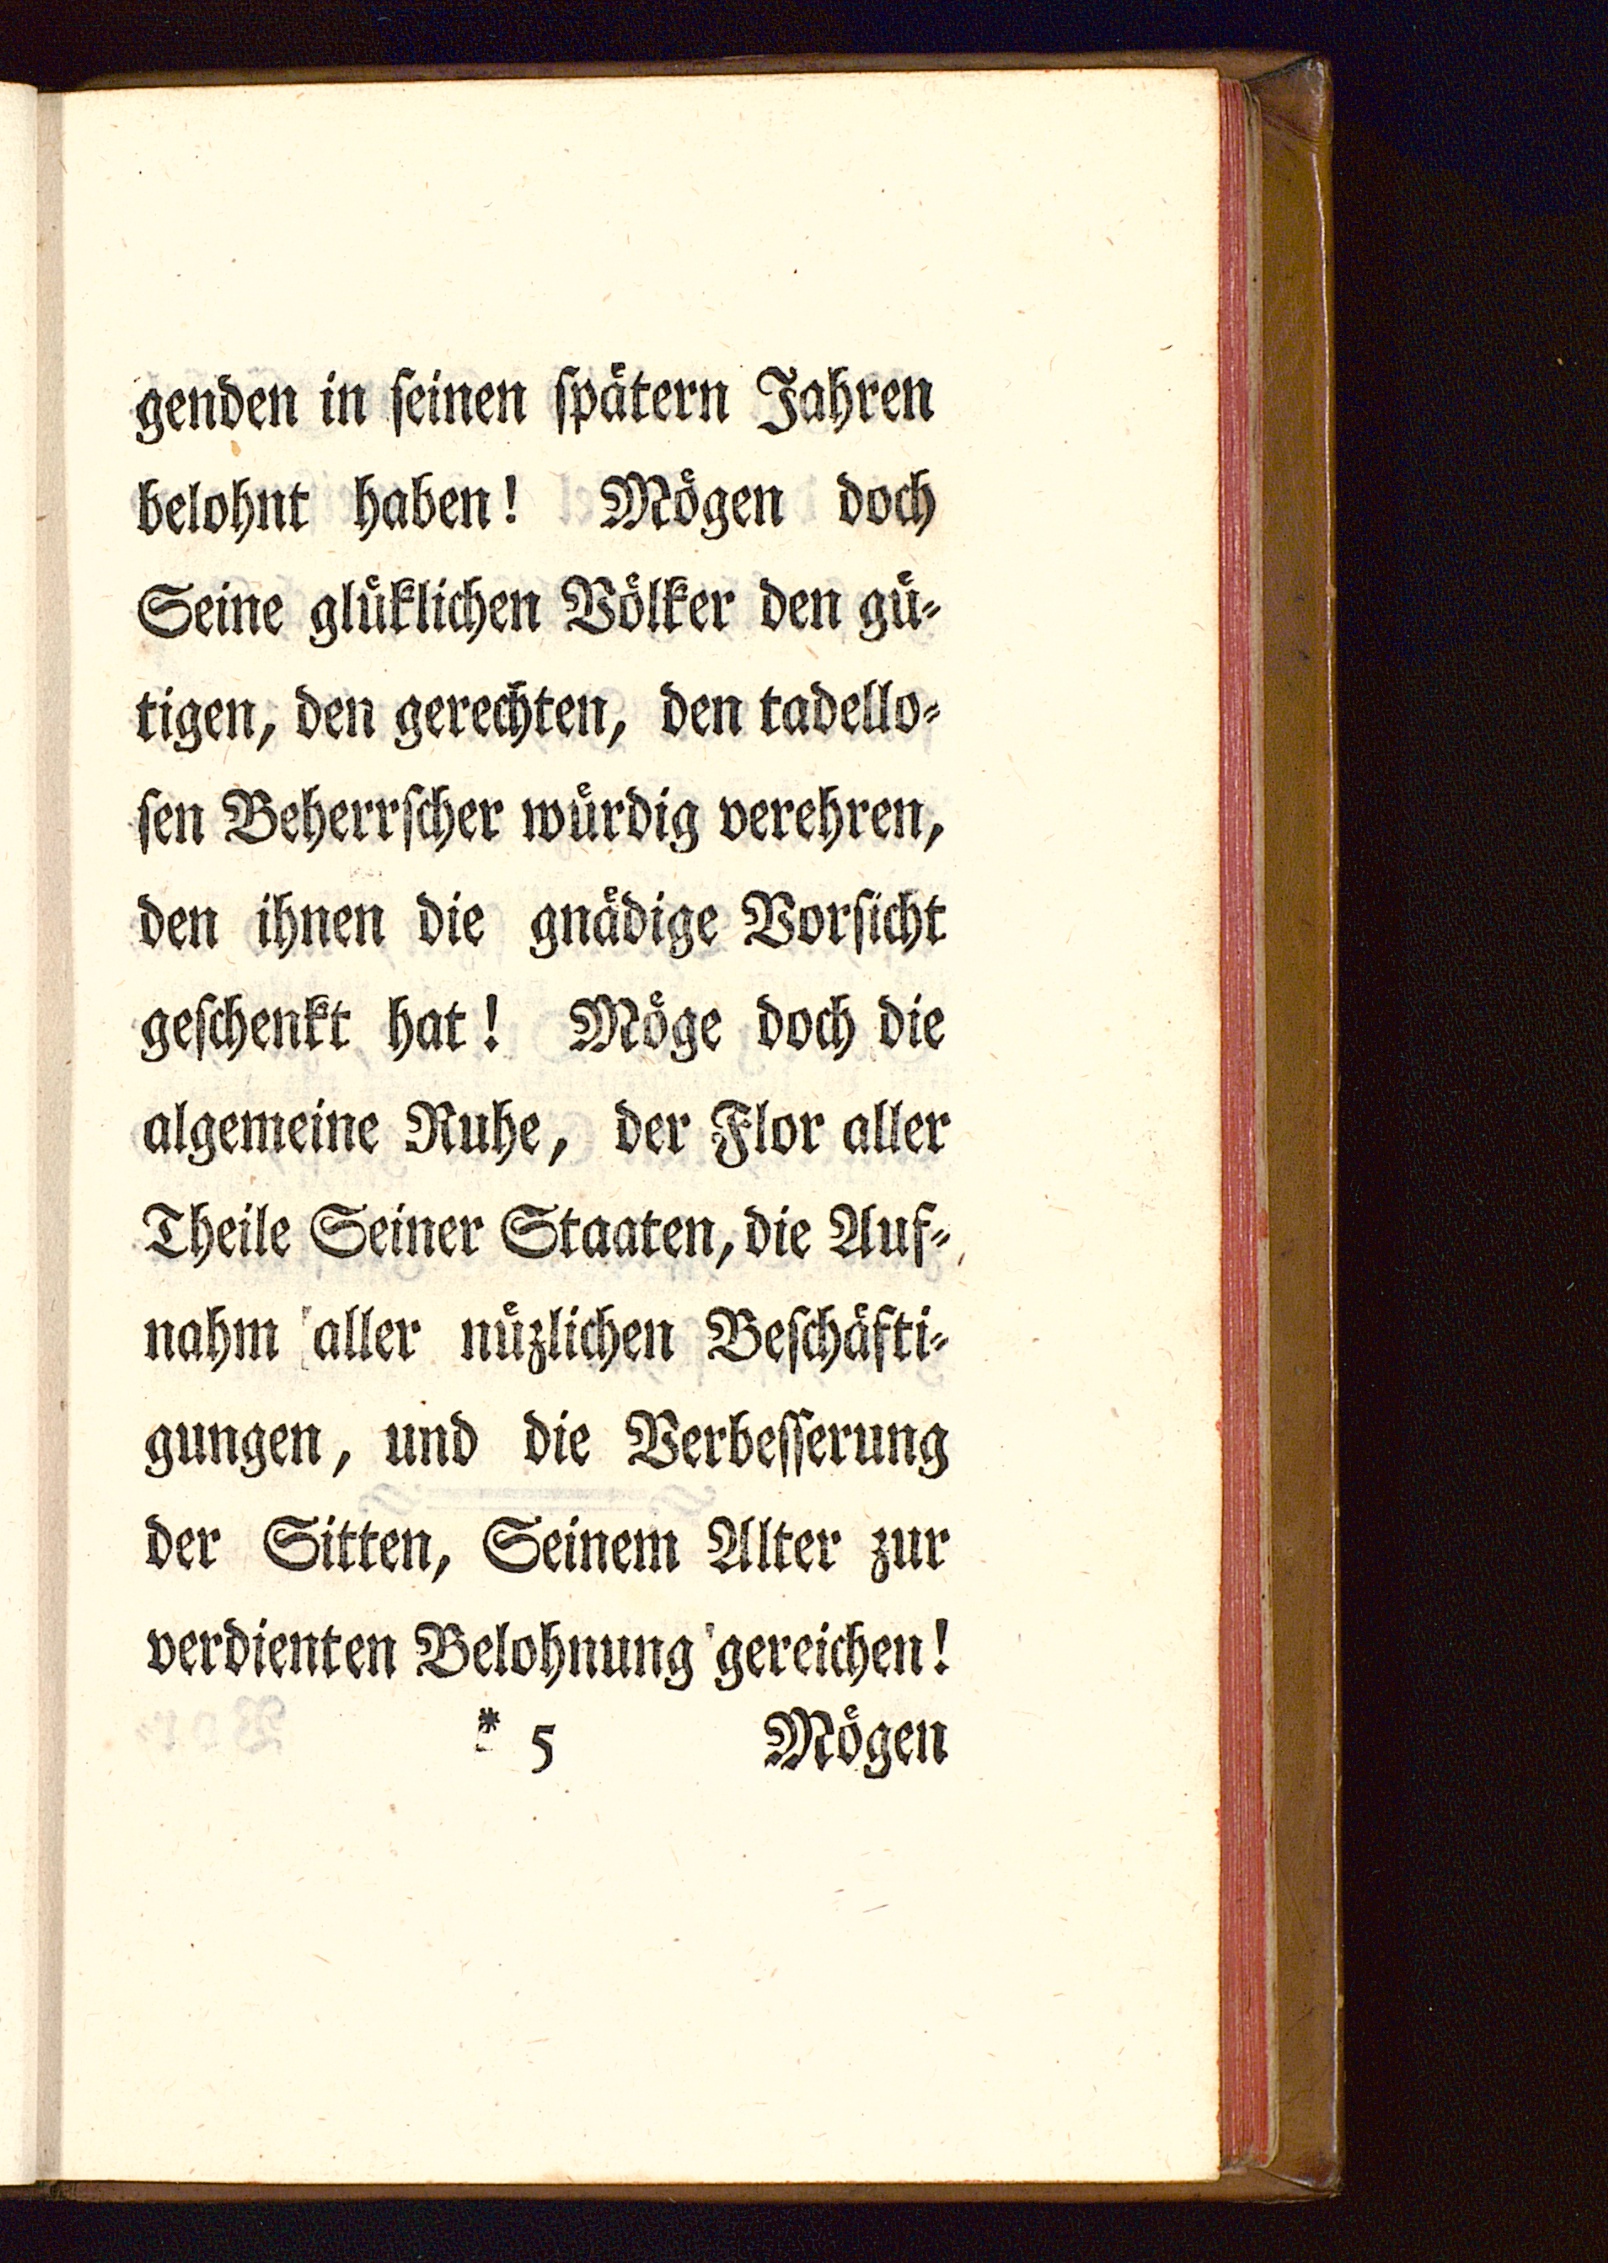 genden in ſeinen ſpätern Jahren
belohnt haben! Mögen doch
Seine glüklichen Völker den gü-
tigen, den gerechten, den tadello-
ſen Beherrſcher würdig verehren,
den ihnen die gnädige Vorſicht
geſchenkt hat! Möge doch die
algemeine Ruhe, der Flor aller
Theile Seiner Staaten, die Auf-
nahm aller nüzlichen Beſchäfti-
gungen, und die Verbeſſerung
der Sitten, Seinem Alter zur
verdienten Belohnung gereichen!
* 5 Mögen